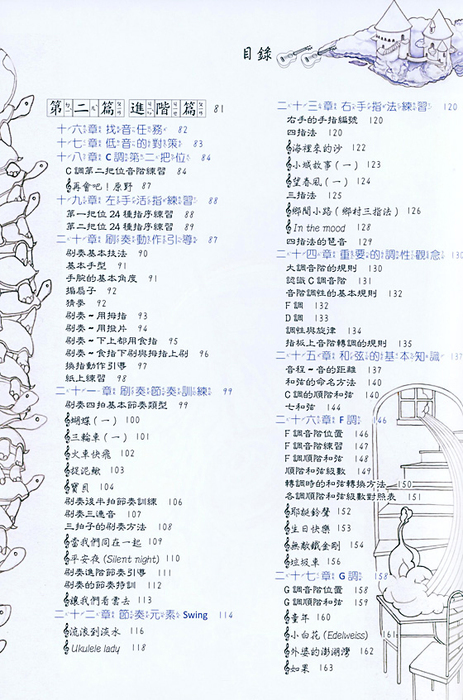 目錄
第二篇 進階篇 81
十六章 找音任務 82
十七章 低音的對策 83
十八章 C調第二把位 84
C調第二把位音階練習 84
再會吧！原野 87
十九章 左手活指練習 88
第一把位24種指序練習 88
第二把位24種指序練習 89
二十章 刷奏動作引導 87
刷奏基本技法 90
基本手型 91
手腕的基本角度 91
搧扇子 92
猜拳 92
刷奏~用拇指 93
刷奏~用撥片 94
刷奏~下上都用食指 95
刷奏~食指下刷與拇指上刷 96
換指動作引導 97
紙上練習 98
二十一章 刷奏節奏訓練 99
刷奏四拍基本節奏類型 99
蝴蝶（一） 100
三輪車（一） 101
火車快飛 102
捉泥鰍 103
寶貝 104
刷奏後半拍節奏訓練 106
刷奏三連音 107
三拍子的刷奏方法 108
當我們同在一起 109
平安夜(Silent night) 110
刷奏進階節奏引導 111
刷奏的節奏特訓 112
讓我們看雲去 113
二十二章 節奏元素 Swing 114
流浪到淡水 116
Ukulele lady 118
二十三章 右手指法練習 120
右手的手指編號 120
四指法 120
海裡來的沙 122
小城故事（一） 123
望春風（一） 124
三指法 125
鄉間小路（鄉村三指法） 126
In the mood 128
四指法的琶音 129
二十四章 重要的調性觀念 130
大調音階的規則 130
認識C調音階 131
音階調性的基本規則 132
F調 132
D調 133
調性與旋律 134
指板上音階轉調的規則 135
二十五章 和弦的基本知識 137
音程~音的距離 137
和弦的命名方法 140
C調的順階和弦 140
七和弦 144
二十六章 F調 146
F調音階位置 146
F調音階練習 147
F調順階和弦 148
順階和弦級數 149
轉調時的和弦轉換方法 150
各調順階和弦級數對照表 151
耶誕鈴聲 152
生日快樂 153
無敵鐵金剛 154
垃圾車 156
二十七章 G調 158
G調音階位置 158
G調順階和弦 159
童年 160
小白花(Edelweiss) 161
外婆的澎湖灣 162
如果 163